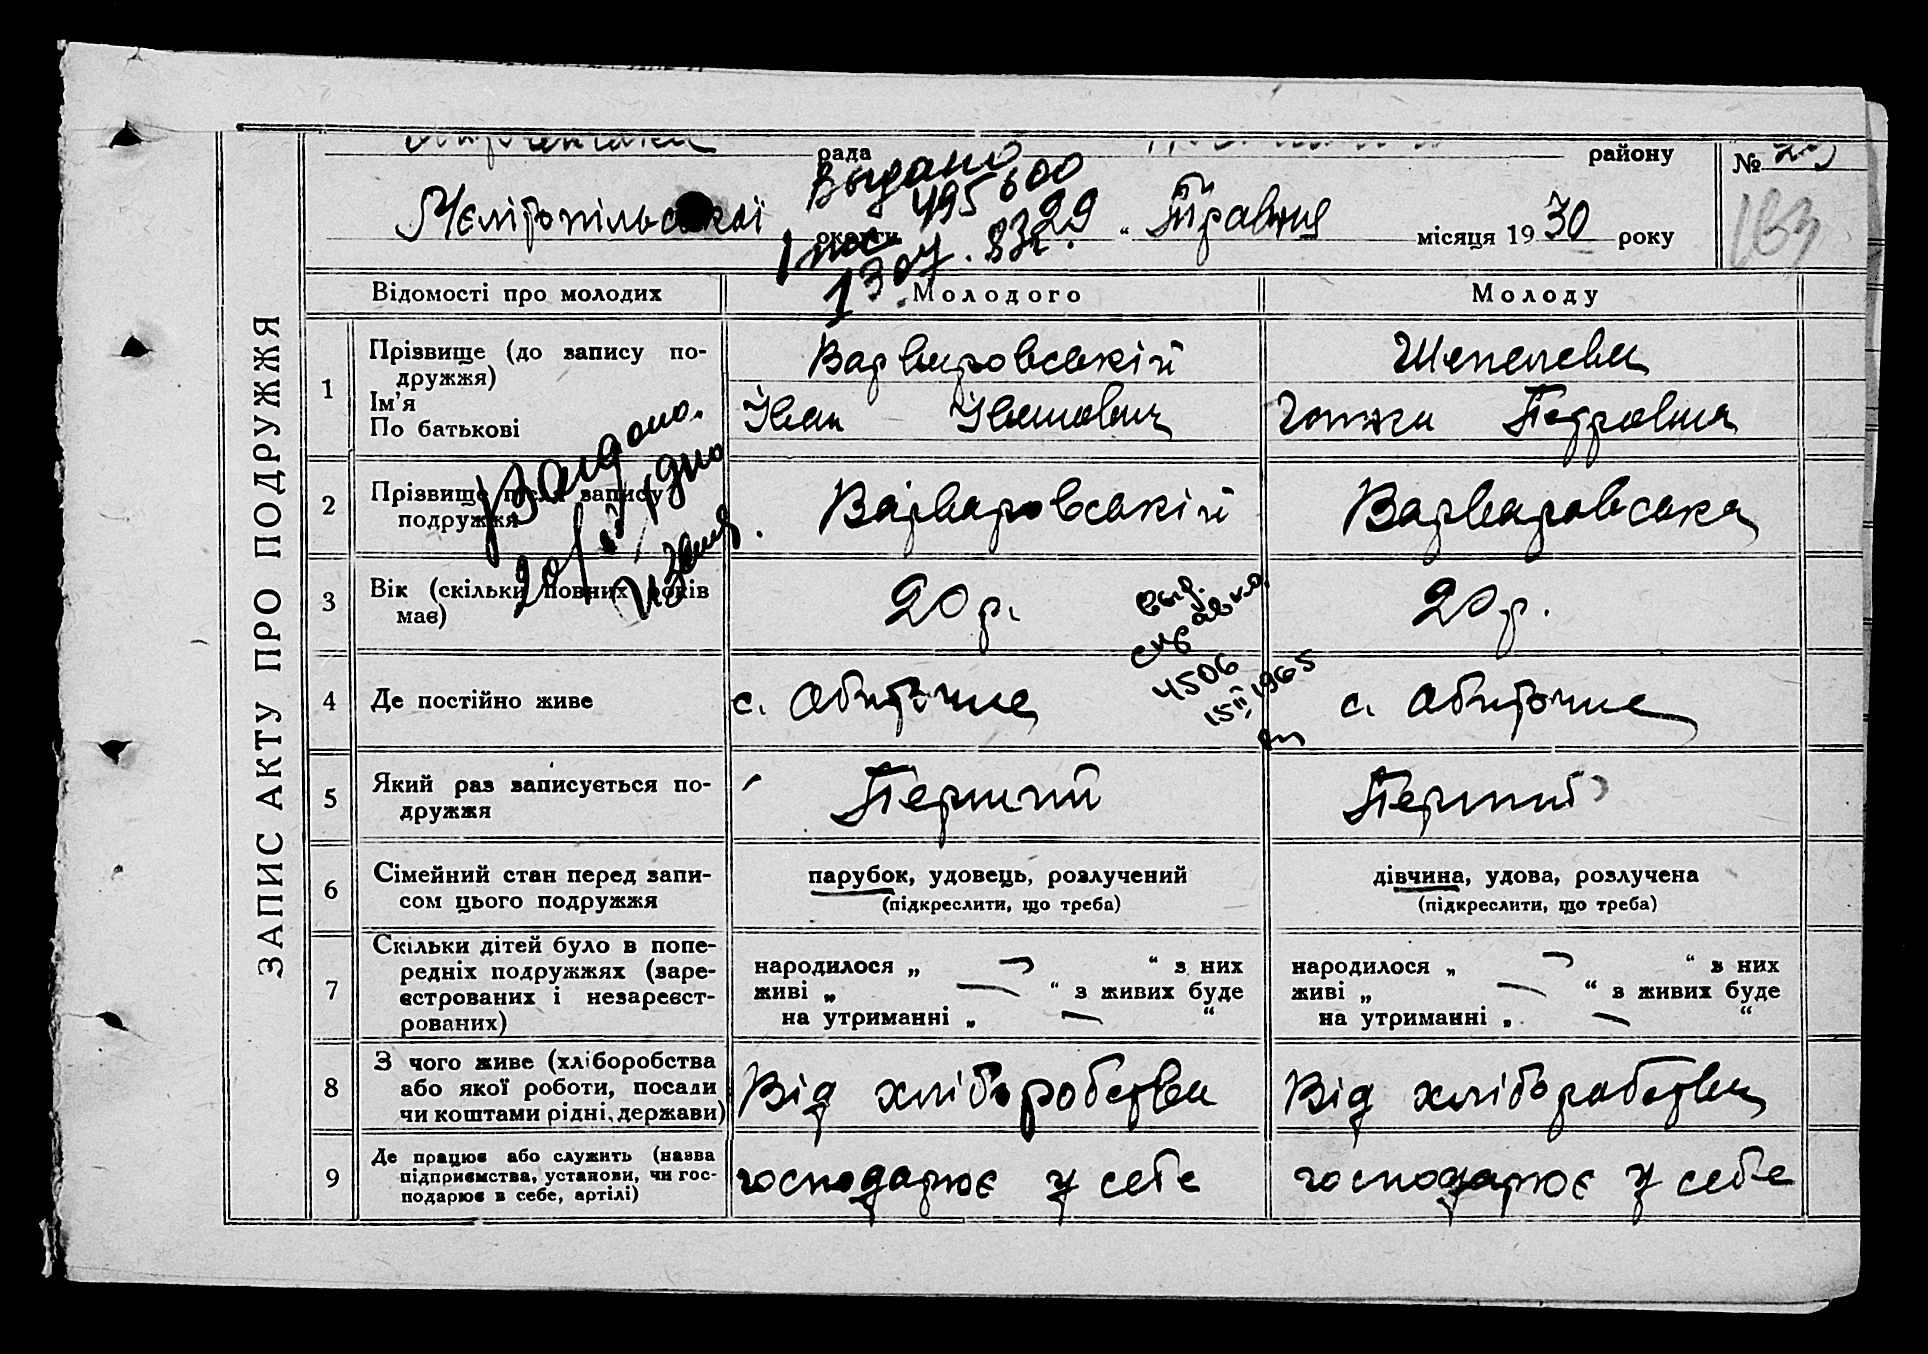 ЗАПИС АКТУ ПРО ПОДРУЖЖЯ
рада району №
Мелітопільської округи 29 " Травня місяця 1930 року
183
Выдано
495600
Відомості про молодих Молодого Молоду
1 Прізвище (до запису по-
дружжя)
Ім'я
По батькові
Варваровський Шепелева
Іван Іванович Петровна
2 Прізвище після запису
подружжя
Варваровський Варваровська
Выдано.
3 Вік (скільки повних років
має)
20 р. 20 р.
выд.
справка
4506
15 II 1965
4 Де постійно живе с. Обиточне с. Обиточне
5 Який раз записується по-
дружжя
Перший Перший
6 Сімейний стан перед запи-
сом цього подружжя
парубок, удовець, розлучений дівчина, удова, розлучена
(підкреслити, що треба) (підкреслити, що треба)
7 Скільки дітей було в попе-
редніх подружжях (заре-
єстрованих і незареєст-
рованих)
народилося „ — “ з них народилося „ — “ з них
живі „ — “ з живих буде живі „ — “ з живих буде
на утриманні „ — “ на утриманні „ — “
8 З чого живе (хліборобства
або якої роботи, посади
чи коштами рідні, держави)
Від хліборобства Від хліборобства
9 Де працює або служить (назва
підприємства, установи, чи гос-
подарює в себе, артілі)
господарює у себе господарює у себе